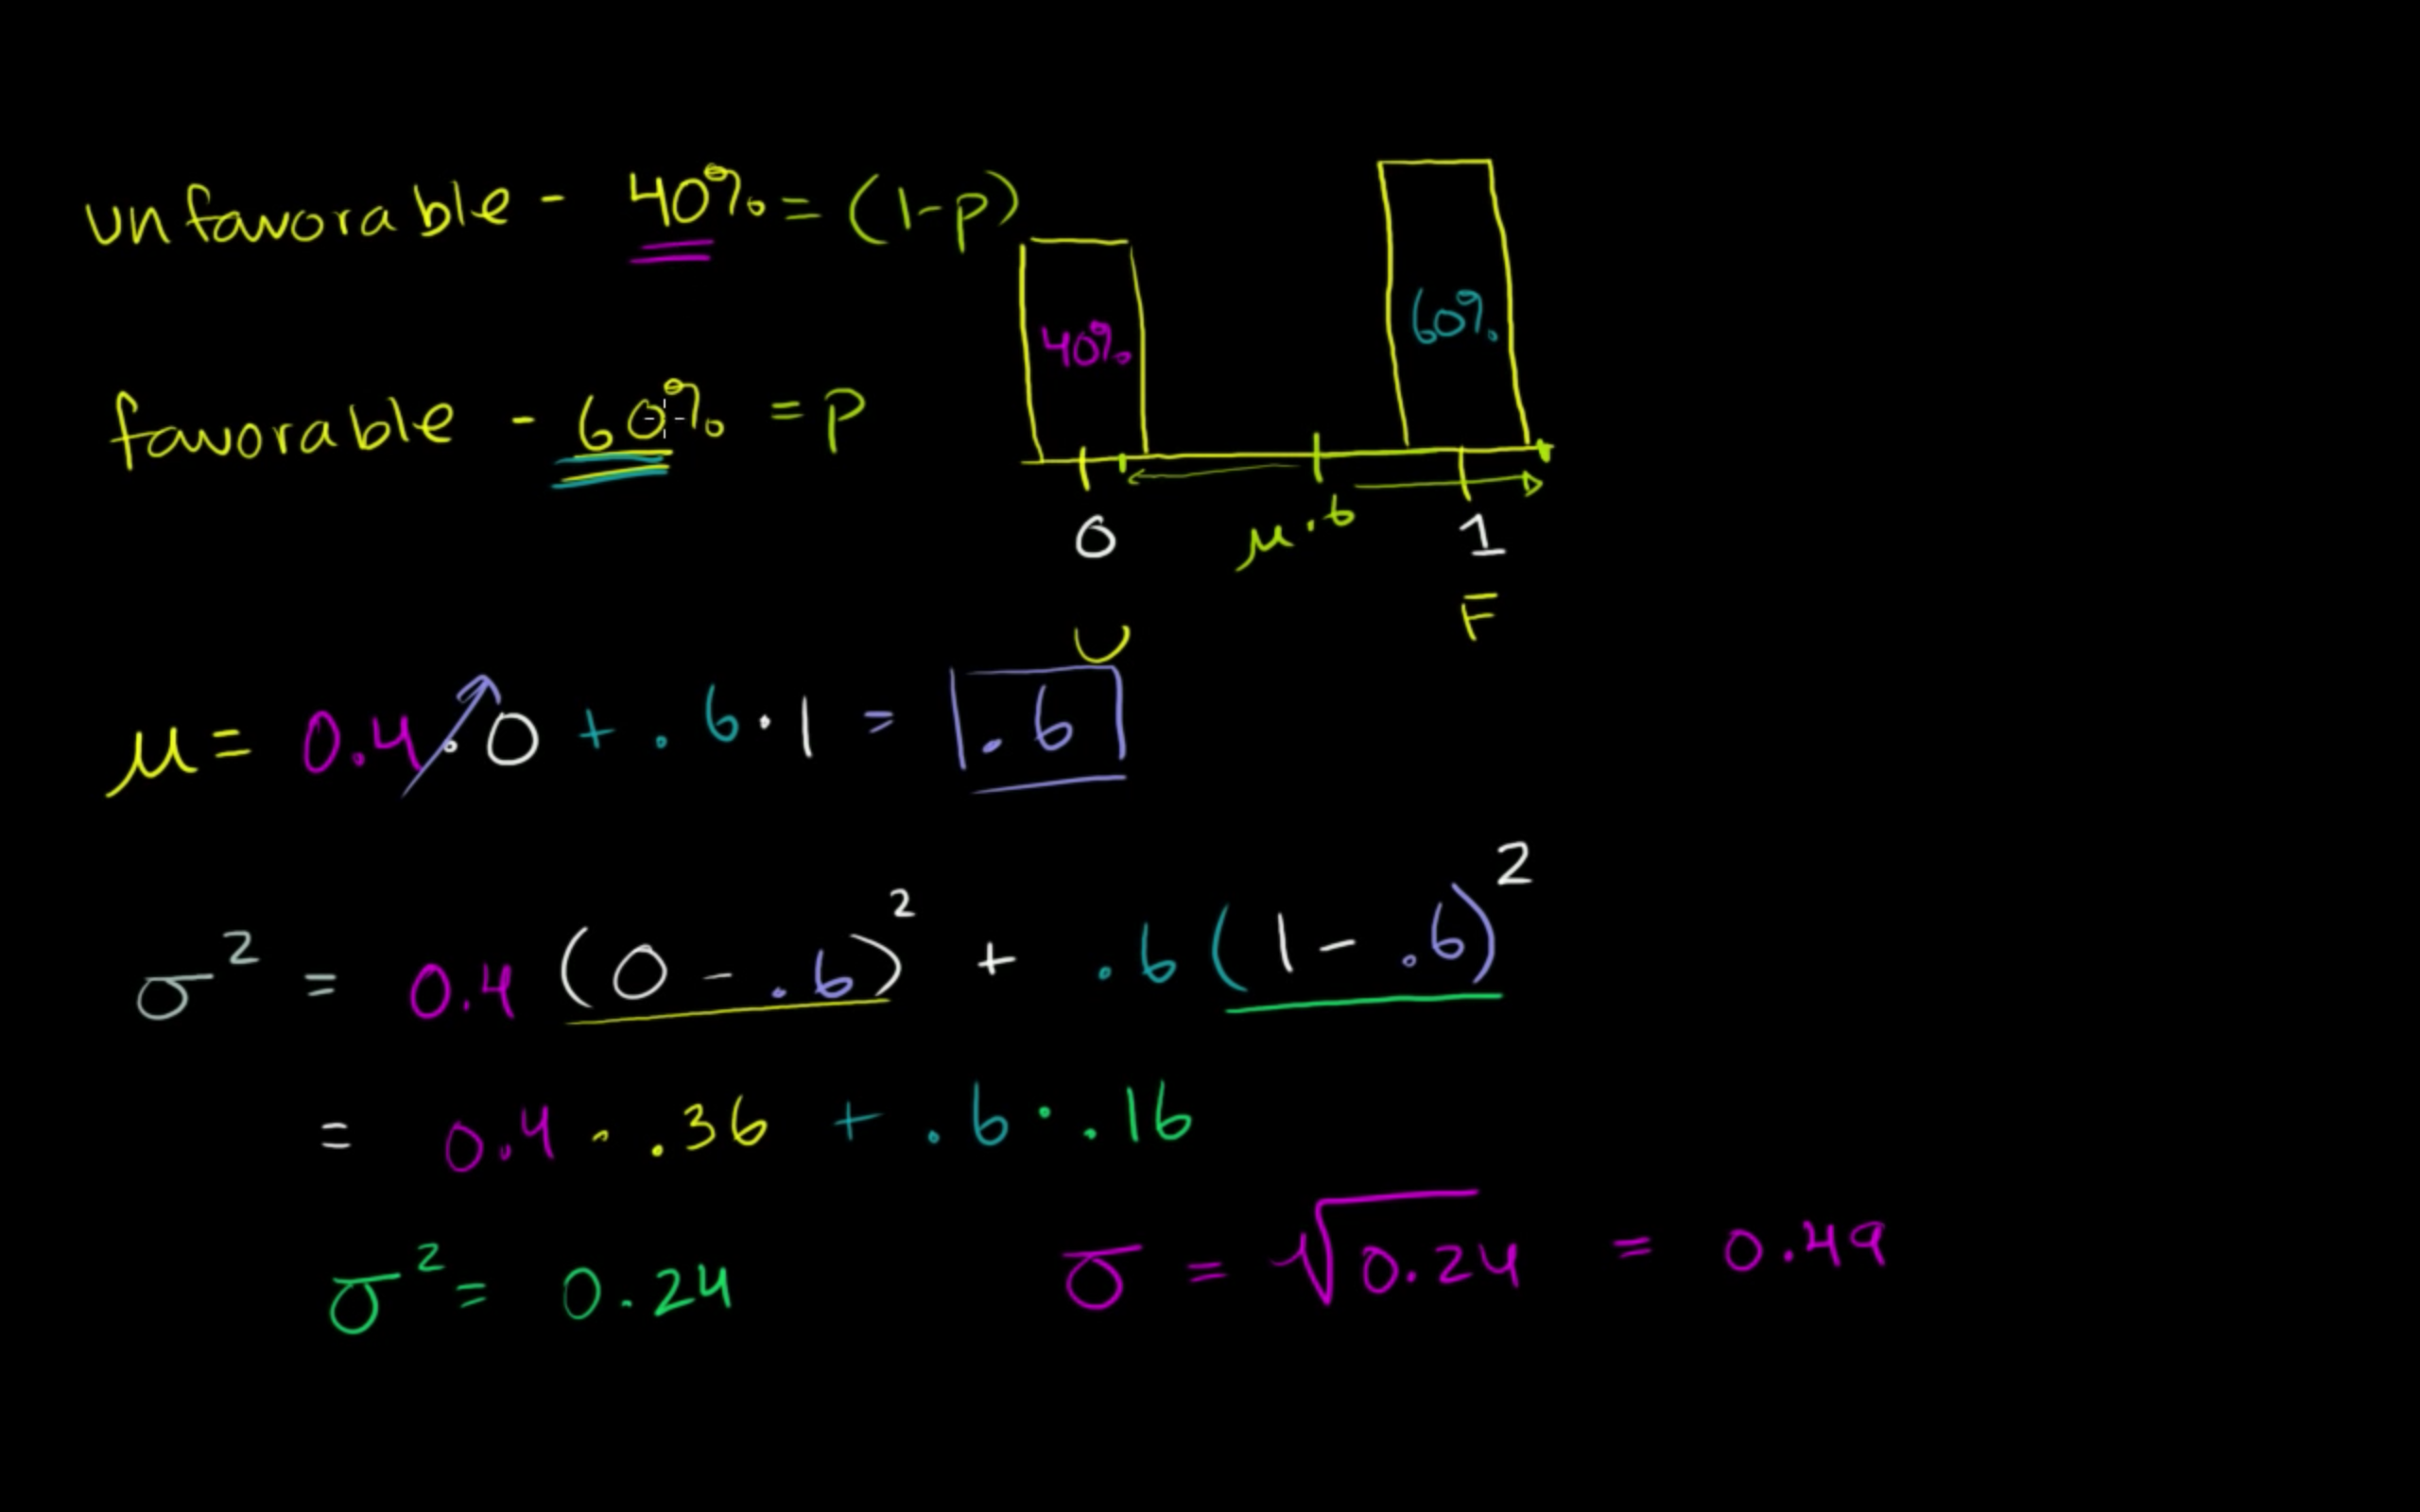 unfavorable - 40% = (1-p)
40%
60%
favorable - 60% = p
0
μ .6
1
U
F
μ = 0.4 · 0 + .6 · 1 = .6
σ² = 0.4 (0 - .6)² + .6 (1 - .6)²
= 0.4 · .36 + .6 · .16
σ² = 0.24
σ = √0.24 = 0.49